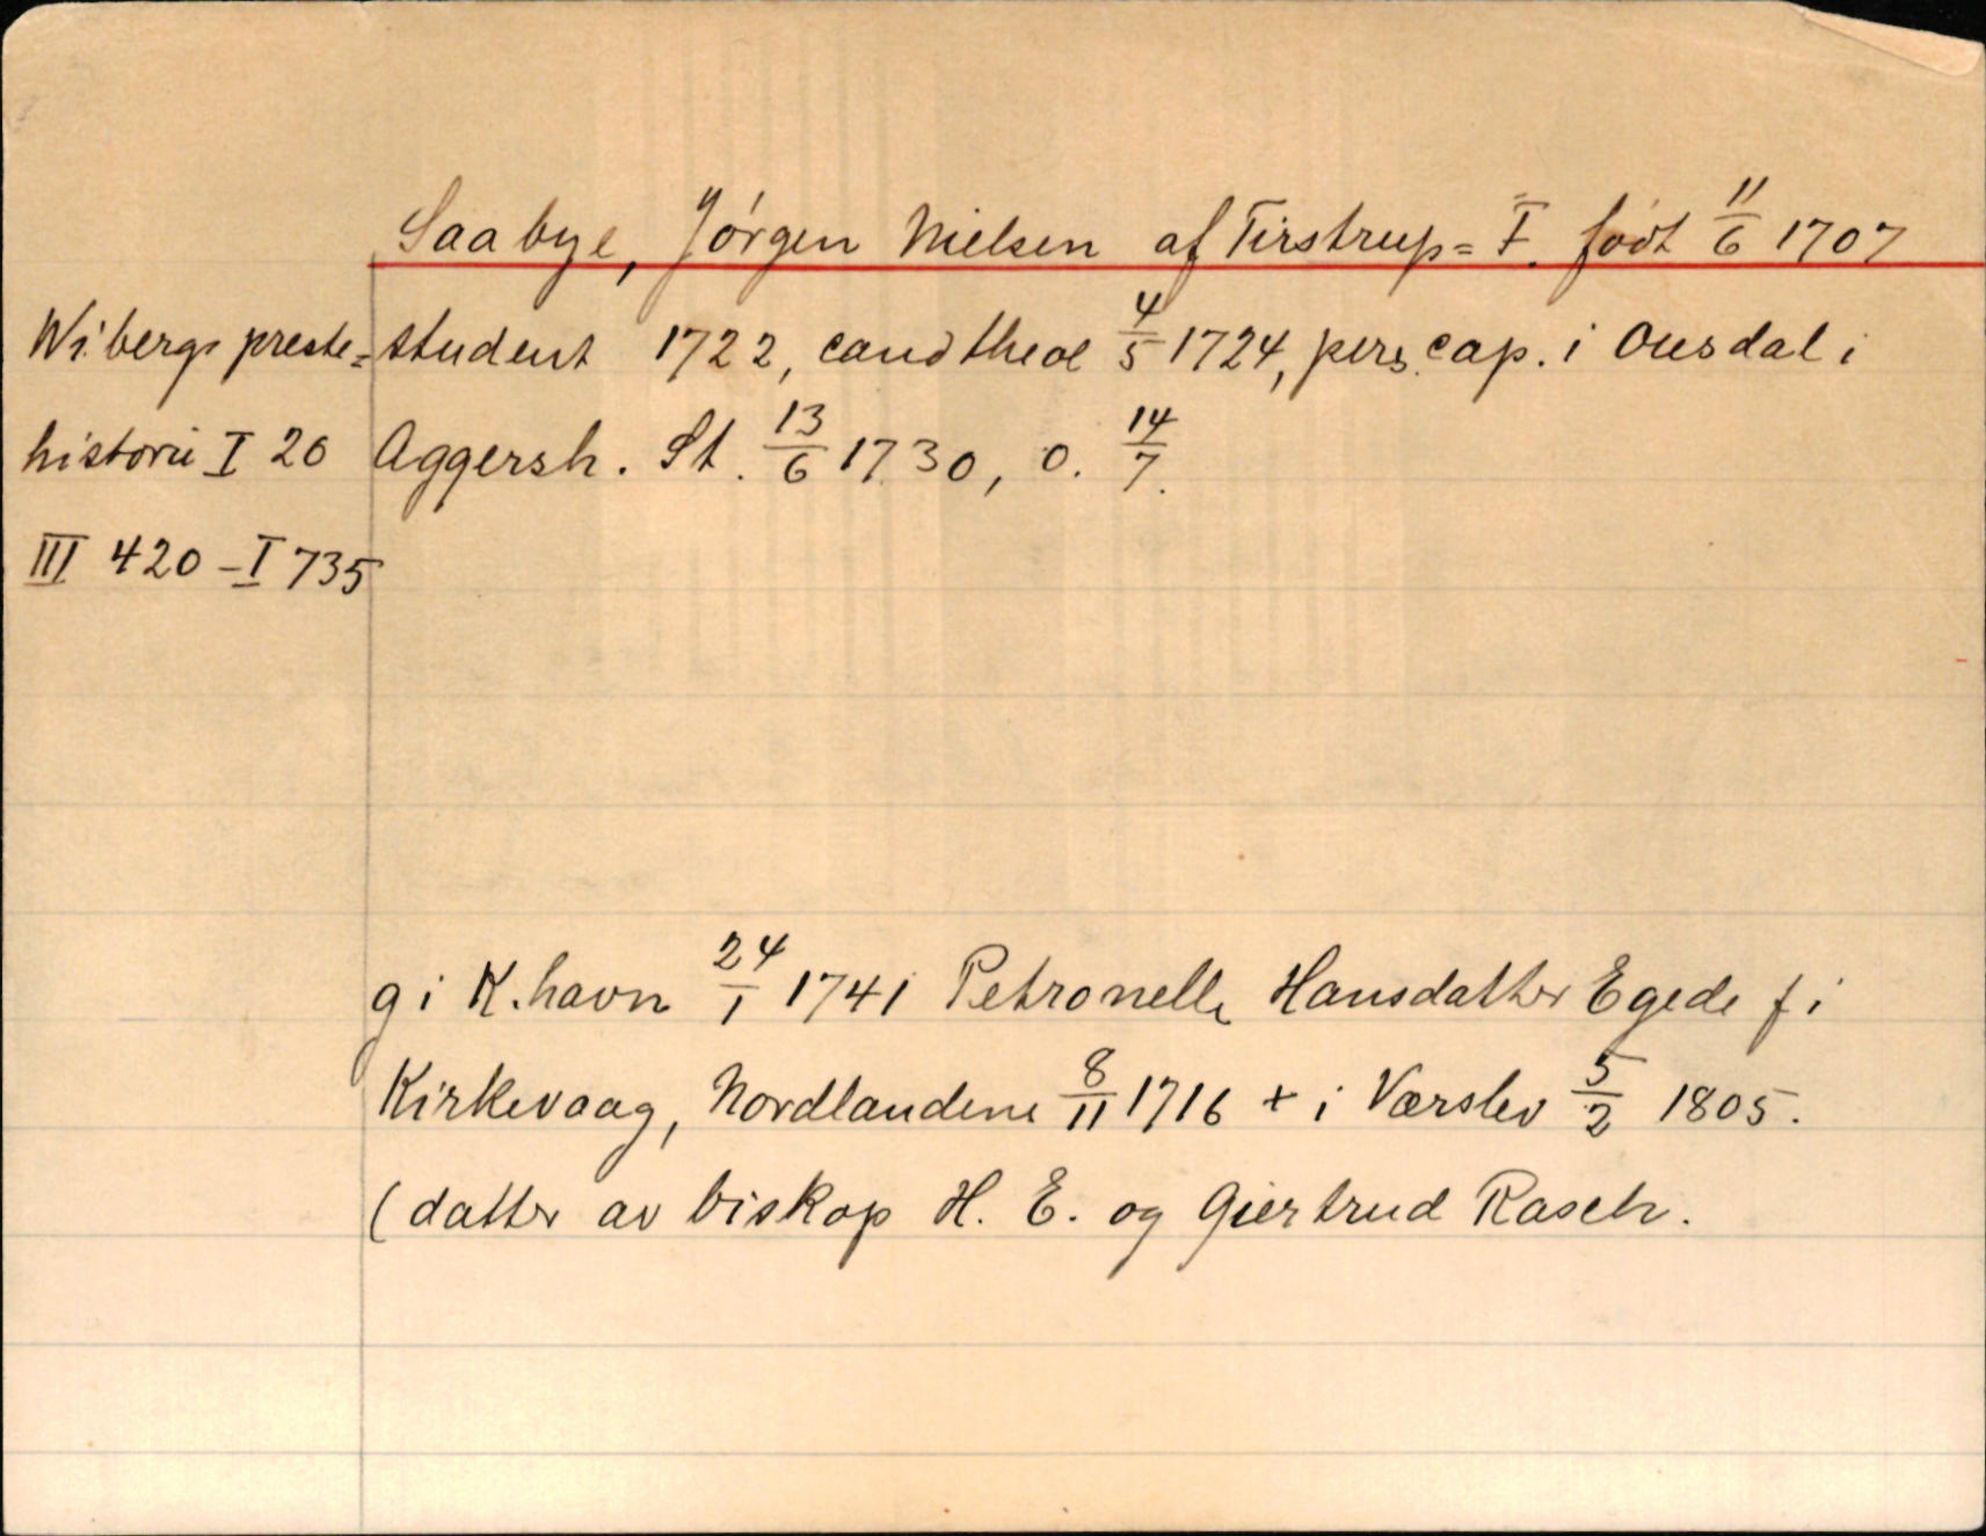 Saabye, Jørgen Nielsen af Tirstrup = F. født 11/6 1707
Wibergs preste= student 1722, cand theol 4/5 1724, pers. cap. i Ousdal i
historie I 20 Aggersh. St. 13/6 1730, o. 14/7.
III 420 - I 735
g i K.havn 24/1 1741 Petronelle Hansdatter Egede f i
Kirkevaag, Nordlandene 8/11 1716 + i Værslev 5/2 1805.
(datter av biskop H. E. og Giertrud Rasch.